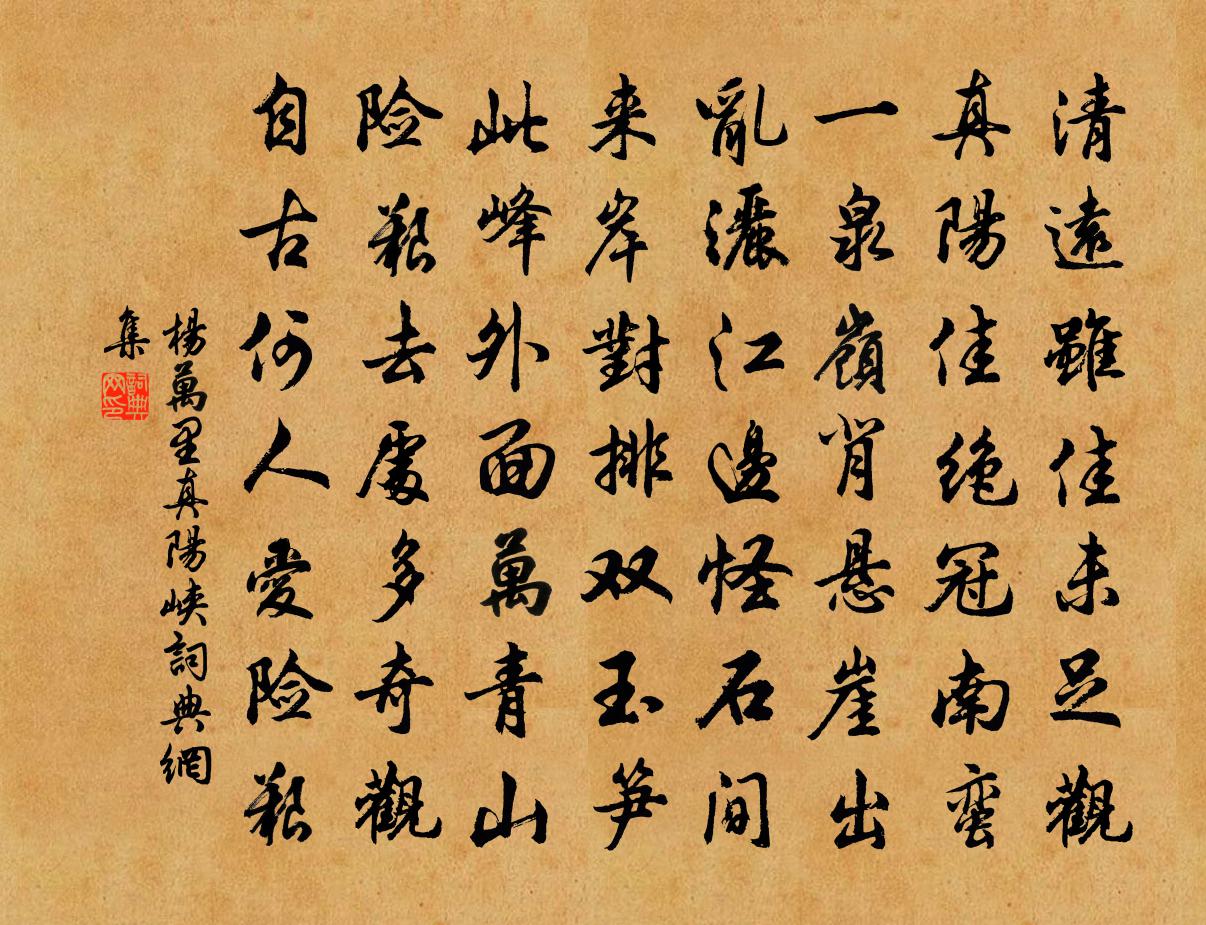 清遠雖佳未足觀
真陽佳绝冠南蛮
一泉嶺背悬崖出
亂灑江邊怪石间
来岸對排双玉笋
此峰外面萬青山
险艱去處多奇觀
自古何人愛险艱
楊萬里真陽峽詞典網
集
詞典
网印